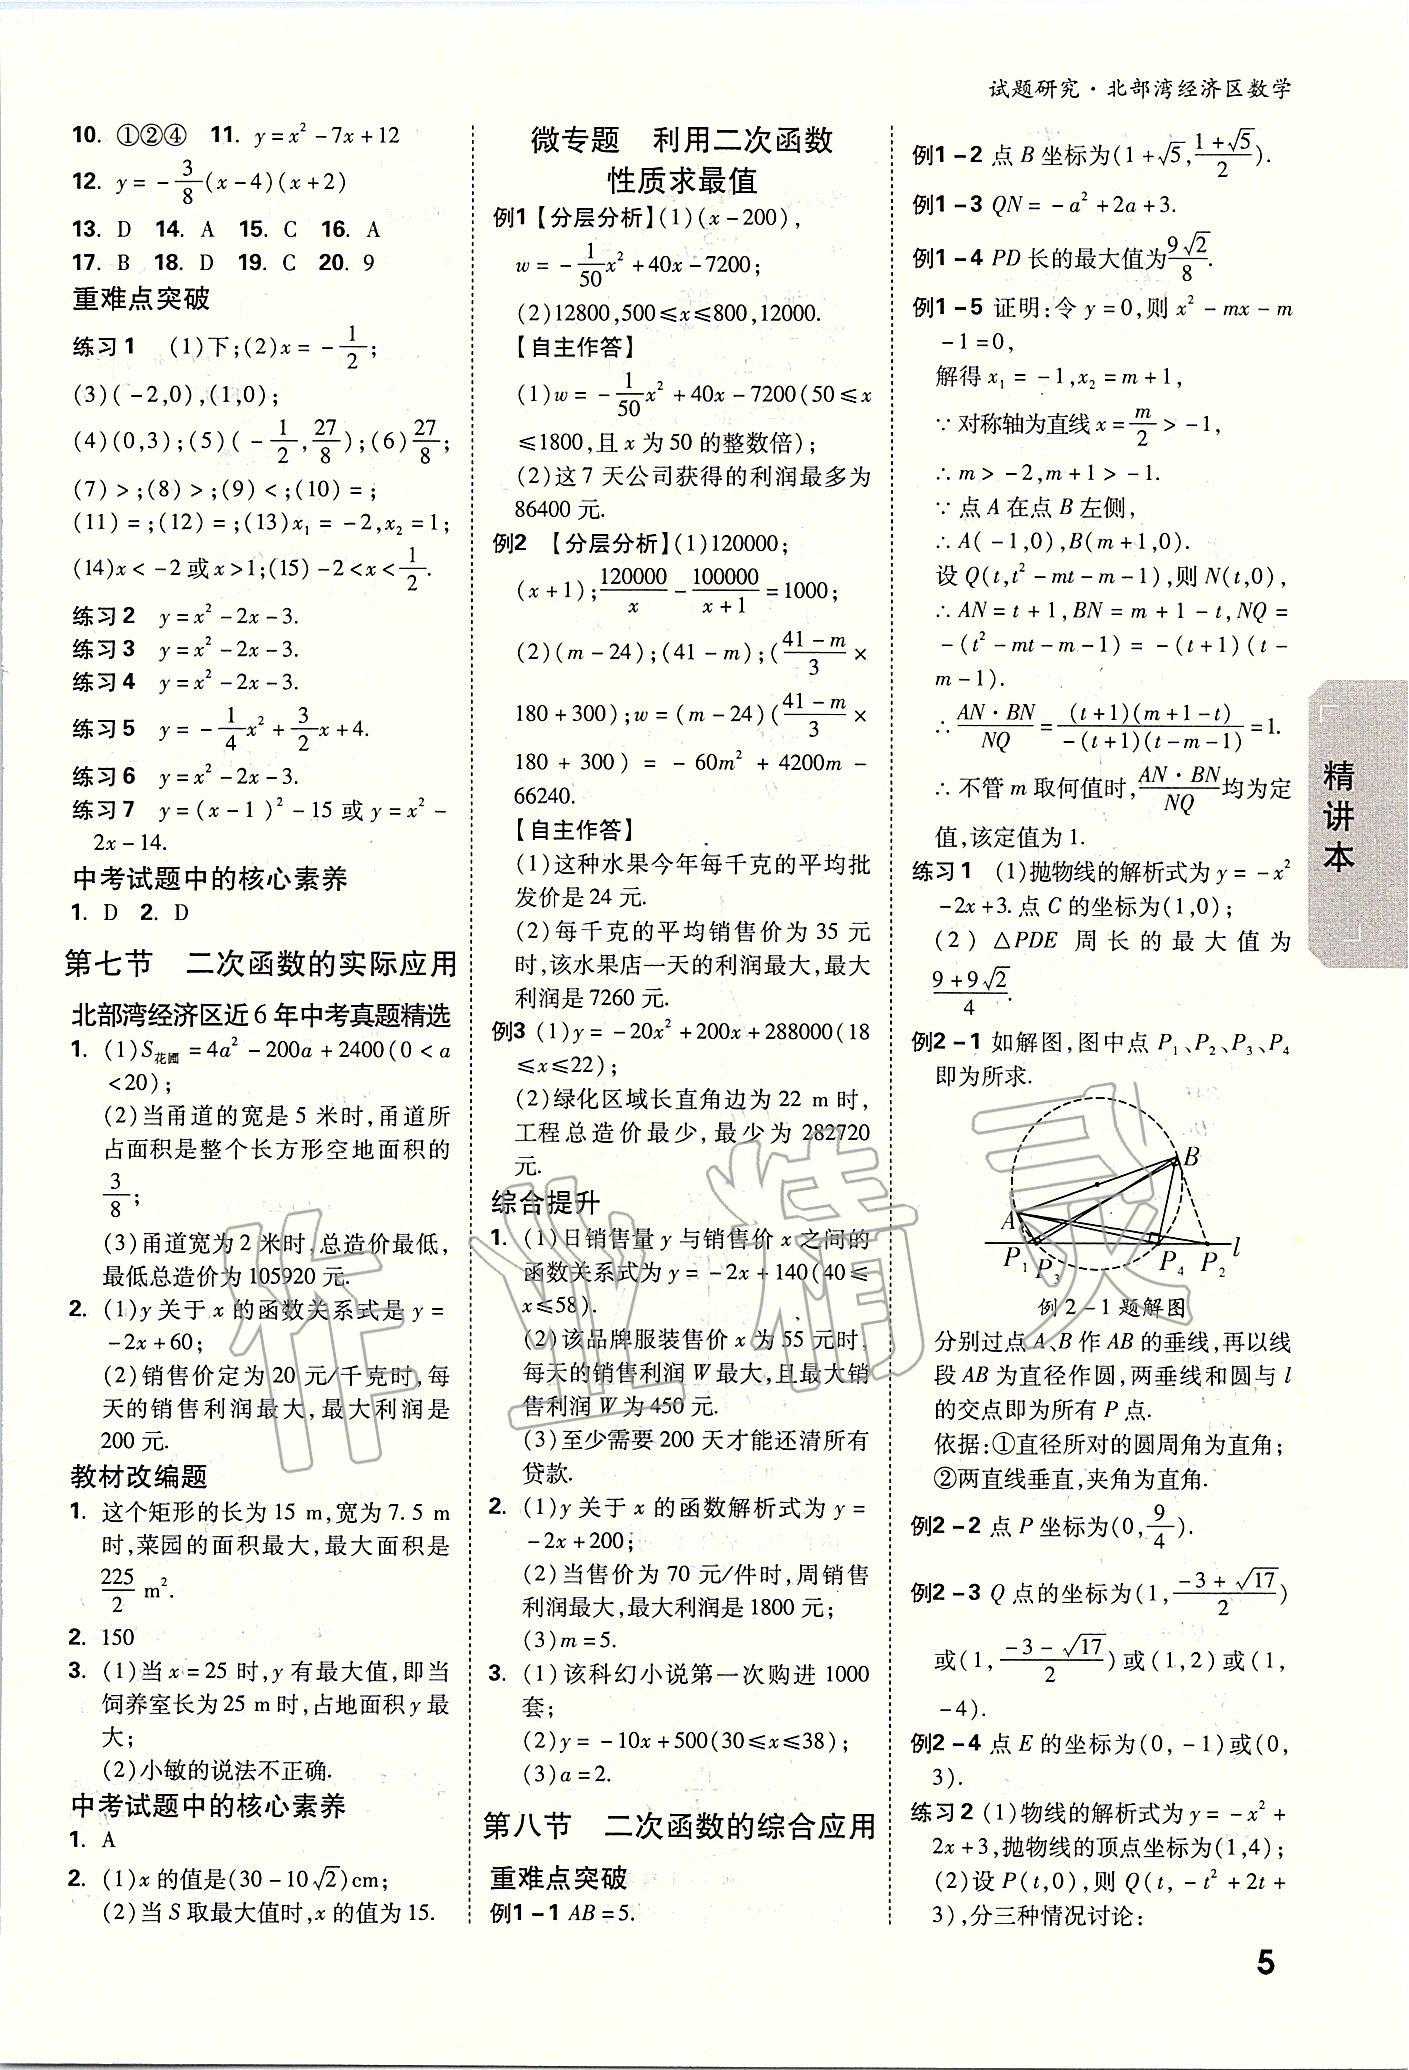 试题研究·北部湾经济区数学
10. ①②④ 11. y=x²-7x+12
12. y=-3/8(x-4)(x+2)
13. D 14. A 15. C 16. A
17. B 18. D 19. C 20. 9
重难点突破
练习1 (1)下;(2)x=-1/2;
(3)(-2,0),(1,0);
(4)(0,3);(5)(-1/2,27/8);(6)27/8;
(7)>;(8)>;(9)<;(10)=;
(11)=;(12)=;(13)x₁=-2,x₂=1;
(14)x<-2或x>1;(15)-2<x<1/2.
练习2 y=x²-2x-3.
练习3 y=x²-2x-3.
练习4 y=x²-2x-3.
练习5 y=-1/4x²+3/2x+4.
练习6 y=x²-2x-3.
练习7 y=(x-1)²-15或y=x²-
2x-14.
中考试题中的核心素养
1. D 2. D
第七节 二次函数的实际应用
北部湾经济区近6年中考真题精选
1. (1)S花圃=4a²-200a+2400(0<a
<20);
(2)当甬道的宽是5米时,甬道所
占面积是整个长方形空地面积的
3/8;
(3)甬道宽为2米时,总造价最低,
最低总造价为105920元.
2. (1)y关于x的函数关系式是y=
-2x+60;
(2)销售价定为20元/千克时,每
天的销售利润最大,最大利润是
200元.
教材改编题
1. 这个矩形的长为15 m,宽为7.5 m
时,菜园的面积最大,最大面积是
225/2 m².
2. 150
3. (1)当x=25时,y有最大值,即当
饲养室长为25 m时,占地面积y最
大;
(2)小敏的说法不正确.
中考试题中的核心素养
1. A
2. (1)x的值是(30-10√2)cm;
(2)当S取最大值时,x的值为15.
微专题 利用二次函数
性质求最值
例1【分层分析】(1)(x-200),
w=-1/50x²+40x-7200;
(2)12800,500≤x≤800,12000.
【自主作答】
(1)w=-1/50x²+40x-7200(50≤x
≤1800,且x为50的整数倍);
(2)这7天公司获得的利润最多为
86400元.
例2 【分层分析】(1)120000;
(x+1);120000/x-100000/(x+1)=1000;
(2)(m-24);(41-m);((41-m)/3×
180+300);w=(m-24)((41-m)/3×
180+300)=-60m²+4200m-
66240.
【自主作答】
(1)这种水果今年每千克的平均批
发价是24元.
(2)每千克的平均销售价为35元
时,该水果店一天的利润最大,最大
利润是7260元.
例3 (1)y=-20x²+200x+288000(18
≤x≤22);
(2)绿化区域长直角边为22 m时,
工程总造价最少,最少为282720
元.
综合提升
1. (1)日销售量y与销售价x之间的
函数关系式为y=-2x+140(40≤
x≤58).
(2)该品牌服装售价x为55元时,
每天的销售利润W最大,且最大销
售利润W为450元.
(3)至少需要200天才能还清所有
贷款.
2. (1)y关于x的函数解析式为y=
-2x+200;
(2)当售价为70元/件时,周销售
利润最大,最大利润是1800元;
(3)m=5.
3. (1)该科幻小说第一次购进1000
套;
(2)y=-10x+500(30≤x≤38);
(3)a=2.
第八节 二次函数的综合应用
重难点突破
例1-1 AB=5.
例1-2 点B坐标为(1+√5,(1+√5)/2).
例1-3 QN=-a²+2a+3.
例1-4 PD长的最大值为9√2/8.
例1-5 证明:令y=0,则x²-mx-m
-1=0,
解得x₁=-1,x₂=m+1,
∵对称轴为直线x=m/2>-1,
∴m>-2,m+1>-1.
∵点A在点B左侧,
∴A(-1,0),B(m+1,0).
设Q(t,t²-mt-m-1),则N(t,0),
∴AN=t+1,BN=m+1-t,NQ=
-(t²-mt-m-1)=-(t+1)(t-
m-1).
∴AN·BN/NQ=(t+1)(m+1-t)/-(t+1)(t-m-1)=1.
∴不管m取何值时,AN·BN/NQ均为定
值,该定值为1.
练习1 (1)抛物线的解析式为y=-x²
-2x+3.点C的坐标为(1,0);
(2)△PDE周长的最大值为
(9+9√2)/4.
例2-1 如解图,图中点P₁、P₂、P₃、P₄
即为所求.
B
A
P₁ P₃ P₄ P₂ l
例2-1题解图
分别过点A、B作AB的垂线,再以线
段AB为直径作圆,两垂线和圆与l
的交点即为所有P点.
依据:①直径所对的圆周角为直角;
②两直线垂直,夹角为直角.
例2-2 点P坐标为(0,9/4).
例2-3 Q点的坐标为(1,(-3+√17)/2)
或(1,(-3-√17)/2)或(1,2)或(1,
-4).
例2-4 点E的坐标为(0,-1)或(0,
3).
练习2 (1)物线的解析式为y=-x²+
2x+3,抛物线的顶点坐标为(1,4);
(2)设P(t,0),则Q(t,-t²+2t+
3),分三种情况讨论:
精讲本
5
作业精灵